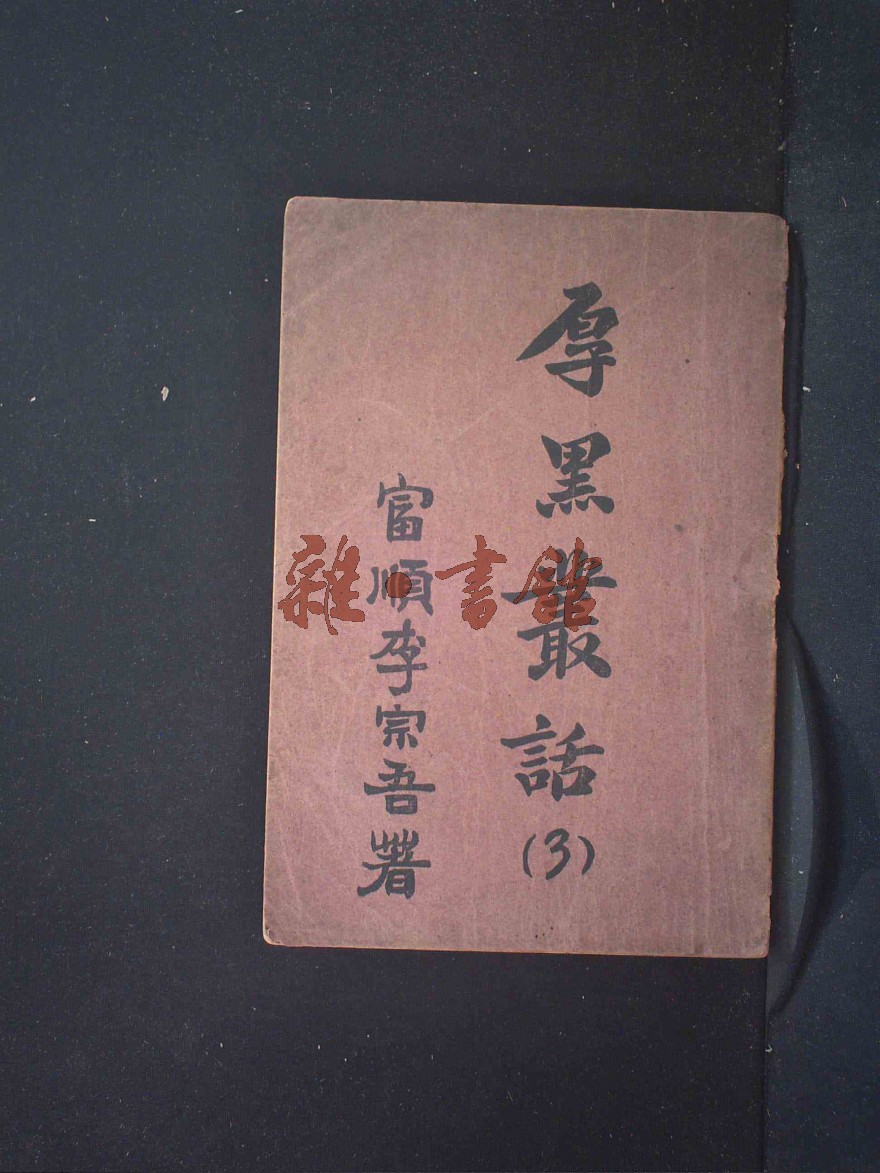 厚黑叢話
(3)
富順李宗吾著
雜·書館